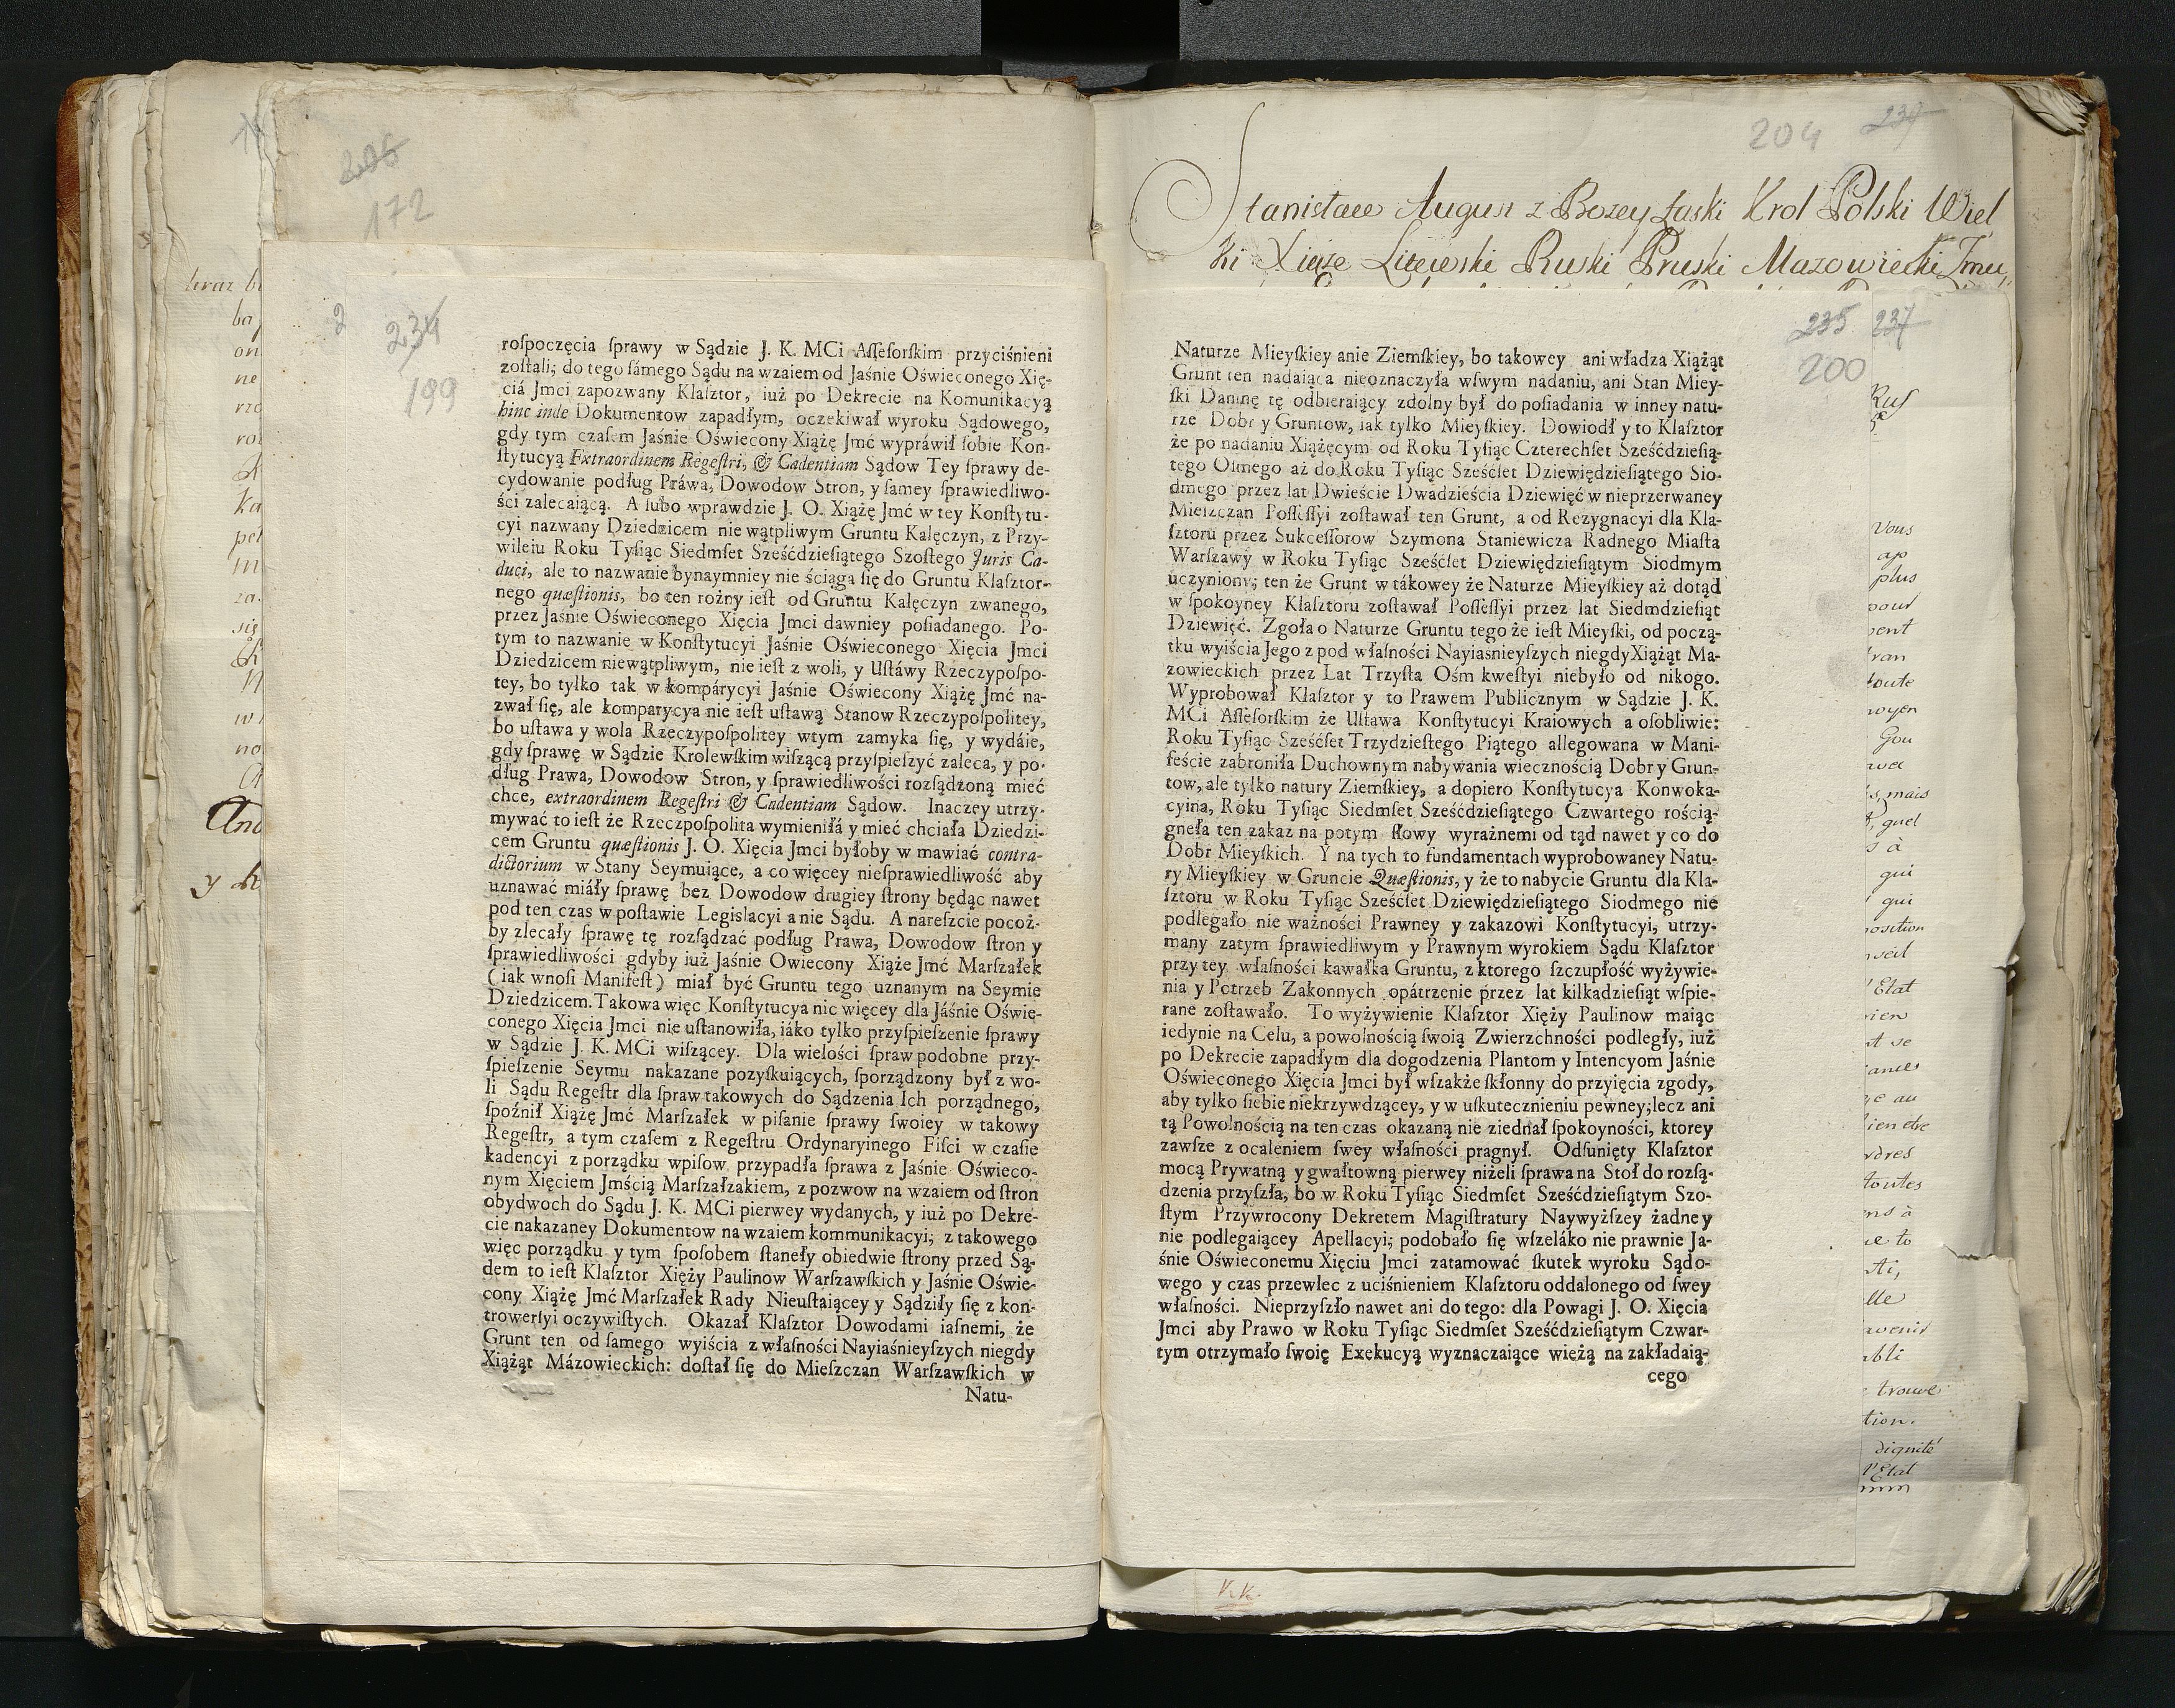 206
172
2
234
199
roſpoczęcia ſprawy w Sądzie J. K. MCi Aſſeſorſkim przyciśnieni
zoſtali; do tego ſámego Sądu na wzaiem od Jaśnie Oświeconego Xię-
ciá Jmci zapozwany Klaſztor, iuż po Dekrecie na Komunikacyą
hinc inde Dokumentow zapadłym, oczekiwał wyroku Sądowego,
gdy tym czaſem Jaśnie Oświecony Xiążę Jmć wypráwił ſobie Kon-
ſtytucyą Extraordinem Regeſtri, & Cadentiam Sądow Tey ſprawy de-
cydowanie podług Práwa, Dowodow Stron, y ſamey ſprawiedliwo-
ści zalecaiącą. A lubo wprawdzie J. O. Xiążę Jmć w tey Konſtytu-
cyi nazwany Dziedzicem nie wątpliwym Gruntu Kałęczyn, z Przy-
wileiu Roku Tyſiąc Siedmſet Sześćdzieſiątego Szoſtego Juris Ca-
duci, ale to nazwanie bynaymniey nie ściąga ſię do Gruntu Klaſztor-
nego quæſtionis, bo ten rożny ieſt od Gruntu Kałęczyn zwanego,
przez Jaśnie Oświeconego Xięcia Jmci dawniey poſiadanego. Po-
tym to nazwanie w Konſtytucyi Jaśnie Oświeconego Xięcia Jmci
Dziedzicem niewątpliwym, nie ieſt z woli, y Uſtáwy Rzeczypoſpo-
tey, bo tylko tak w kompárycyi Jaśnie Oświecony Xiążę Jmć na-
zwał ſię, ale komparycya nie ieſt uſtawą Stanow Rzeczypoſpolitey,
bo uſtawa y wola Rzeczypoſpolitey wtym zamyka ſię, y wydáie,
gdy ſprawę w Sądzie Krolewſkim wiſzącą przyſpieſzyć zaleca, y po-
dług Prawa, Dowodow Stron, y ſprawiedliwości rozſądzoną mieć
chce, extraordinem Regeſtri & Cadentiam Sądow. Inaczey utrzy-
mywać to ieſt że Rzeczpoſpolita wymieniłá y mieć chciała Dziedzi-
cem Gruntu quæſtionis J. O. Xięcia Jmci byłoby w mawiać contra-
dictorium w Stany Seymuiące, a co więcey nieſprawiedliwość aby
uznawać miáły ſprawę bez Dowodow drugiey ſtrony będąc nawet
pod ten czas w poſtawie Legislacyi a nie Sądu. A nareſzcie pocoż-
by zlecały ſprawę tę rozſądzać podług Prawa, Dowodow ſtron y
ſprawiedliwości gdyby iuż Jaśnie Owiecony Xiąże Jmć Marſzałek
(iak wnoſi Manifeſt) miał być Gruntu tego uznanym na Seymie
Dziedzicem. Takowa więc Konſtytucya nic więcey dla Jáśnie Oświe-
conego Xięcia Jmci nie uſtanowiła, iáko tylko przyſpieſzenie ſprawy
w Sądzie J. K. MCi wiſzącey. Dla wielości ſpraw podobne przy-
ſpieſzenie Seymu nakazane pozyſkuiących, ſporządzony był z wo-
li Sądu Regeſtr dla ſpraw takowych do Sądzenia Ich porządnego,
ſpoźnił Xiążę Jmć Marſzałek w piſanie ſprawy ſwoiey w takowy
Regeſtr, a tym czaſem z Regeſtru Ordynaryinego Fiſci w czaſie
kadencyi z porządku wpiſow przypadła ſprawa z Jaśnie Oświeco-
nym Xięciem Jmścią Marſzałzakiem, z pozwow na wzaiem od ſtron
obydwoch do Sądu J. K. MCi pierwey wydanych, y iuż po Dekre-
cie nakazaney Dokumentow na wzaiem kommunikacyi; z takowego
więc porządku y tym ſpoſobem ſtaneły obiedwie ſtrony przed Są-
dem to ieſt Klaſztor Xięży Paulinow Warſzawſkich y Jaśnie Oświe-
cony Xiążę Jmć Marſzałek Rady Nieuſtaiącey y Sądziły ſię z kon-
trowerſyi oczywiſtych. Okazał Klaſztor Dowodami iaſnemi, że
Grunt ten od ſamego wyiścia z właſności Nayiaśnieyſzych niegdy
Xiążąt Mázowieckich: doſtał ſię do Mieſzczan Warſzawſkich w
Natu-
204
237
Stanisław August z Bozey Łaski Krol Polski Wiel
ki Xiąże Litewski Ruski Pruski Mazowiecki Zmu,
235
237
200
Naturze Mieyſkiey anie Ziemſkiey, bo takowey ani władza Xiążąt
Grunt ten nadaiąca nieoznaczyła wſwym nadaniu, ani Stan Miey-
ſki Daninę tę odbieraiący zdolny był do poſiadania w inney natu-
rze Dobr y Gruntow, iak tylko Mieyſkiey. Dowiodł y to Klaſztor
że po nadaniu Xiążęcym od Roku Tyſiąc Czterechſet Sześćdzieſią-
tego Oſmego aż do Roku Tyſiąc Sześćſet Dziewiędzieſiątego Sio-
dmego przez lat Dwieście Dwadzieścia Dziewięć w nieprzerwaney
Mieſzczan Poſſeſſyi zoſtawał ten Grunt, a od Rezygnacyi dla Kla-
ſztoru przez Sukceſſorow Szymona Staniewicza Radnego Miaſta
Warſzawy w Roku Tyſiąc Sześćſet Dziewiędzieſiątym Siodmym
uczyniony; ten że Grunt w tákowey że Naturze Mieyſkiey aż dotąd
w ſpokoyney Klaſztoru zoſtawał Poſſeſſyi przez lat Siedmdzieſiąt
Dziewięć. Zgoła o Naturze Gruntu tego że ieſt Mieyſki, od począ-
tku wyiścia Jego z pod właſności Nayiasnieyſzych niegdyXiążąt Ma-
zowieckich przez Lat Trzyſta Ośm kweſtyi niebyło od nikogo.
Wyprobował Klaſztor y to Prawem Publicznym w Sądzie J. K.
MCi Aſſeſorſkim że Uſtawa Konſtytucyi Kraiowych a oſobliwie:
Roku Tyſiąc Sześćſet Trzydzieſtego Piątego allegowana w Mani-
feście zabroniła Duchownym nabywania wiecznością Dobr y Grun-
tow, ale tylko natury Ziemſkiey, a dopiero Konſtytucya Konwoka-
cyina, Roku Tyſiąc Siedmſet Sześćdzieſiątego Czwartego rością-
gneła ten zakaz na potym ſłowy wyrażnemi od tąd nawet y co do
Dobr Mieyſkich. Y na tych to fundamentach wyprobowaney Natu-
ry Mieyſkiey w Gruncie Quæſtionis, y że to nabycie Gruntu dla Kla-
ſztoru w Roku Tyſiąc Sześćſet Dziewiędzieſiątego Siodmego nie
podlegało nie ważności Prawney y zakazowi Konſtytucyi, utrzy-
many zatym ſprawiedliwym y Prawnym wyrokiem Sądu Klaſztor
przy tey właſności kawałka Gruntu, z ktorego ſzczupłość wyżywie-
nia y Potrzeb Zakonnych opátrzenie przez lat kilkadzieſiąt wſpie-
rane zoſtawało. To wyżywienie Klaſztor Xięży Paulinow maiąc
iedynie na Celu, a powolnością ſwoią Zwierzchności podległy, iuż
po Dekrecie zapadłym dla dogodzenia Plantom y Intencyom Jaśnie
Oświeconego Xięcia Jmci był wſzakże ſkłonny do przyięcia zgody,
aby tylko ſiebie niekrzywdzącey, y w uſkutecznieniu pewney; lecz ani
tą Powolnością na ten czas okazaną nie ziednał ſpokoyności, ktorey
zawſze z ocaleniem ſwey właſności pragnył. Odſunięty Klaſztor
mocą Prywatną y gwałtowną pierwey niżeli ſprawa na Stoł do rozſą-
dzenia przyſzła, bo w Roku Tyſiąc Siedmſet Sześćdzieſiątym Szo-
ſtym Przywrocony Dekretem Magiſtratury Naywyżſzey żadney
nie podlegaiącey Apellacyi; podobało ſię wſzeláko nie prawnie Ja-
śnie Oświeconemu Xięciu Jmci zatamować ſkutek wyroku Sądo-
wego y czas przewlec z uciśnieniem Klaſztoru oddalonego od ſwey
właſności. Nieprzyſzło nawet ani do tego: dla Powagi J. O. Xięcia
Jmci aby Prawo w Roku Tyſiąc Siedmſet Sześćdzieſiątym Czwar-
tym otrzymało ſwoię Exekucyą wyznaczaiące wieżą na zakładaią-
cego
Vous
plus
pour
toute
mais
qui
qui
l'Etat
au
toutes
trouve
dignité
l'Etat